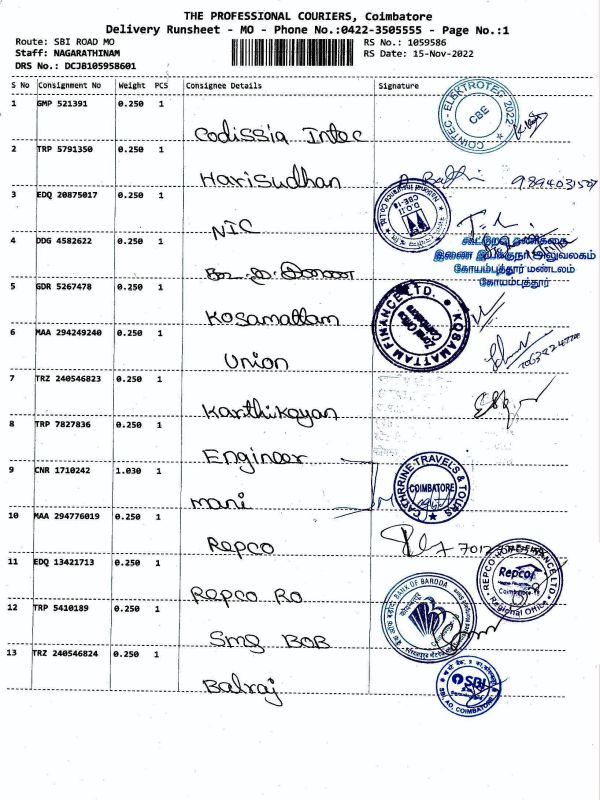 THE PROFESSIONAL COURIERS, Coimbatore
Delivery Runsheet - MO - Phone No.:0422-3505555 - Page No.:1
Route: SBI ROAD MO RS No.: 1059586
Staff: NAGARATHINAM RS Date: 15-Nov-2022
DRS No.: DCJB105958601
S No Consignment No Weight PCS Consignee Details Signature
1 GMP 521391 0.250 1 Codissia Intec
COINTEC-ELEKTROTEC 2022 CBE
2 TRP 5791350 0.250 1 Harisudhan
3 EDQ 20875017 0.250 1 NIC
4 DDG 4582622 0.250 1
கூட்டுறவு தணிக்கை
இணை இயக்குநர் அலுவலகம்
கோயம்புத்தூர் மண்டலம்
கோயம்புத்தூர்
5 GDR 5267478 0.250 1 Kosamattam
KOSAMATTAM FINANCE LTD. Zonal Office Coimbatore
6 MAA 294249240 0.250 1 Union
7 TRZ 240546823 0.250 1 Karthikayan
8 TRP 7827836 0.250 1 Engineer
9 CNR 1710242 1.030 1 mani
CATHRRINE TRAVELS & TOURS COIMBATORE
10 MAA 294776019 0.250 1 Repco
11 EDQ 13421713 0.250 1 Repco Ro
REPCO HOME FINANCE LTD. Repco Regional Office
12 TRP 5410189 0.250 1 Smg BOB
BANK OF BARODA
13 TRZ 240546824 0.250 1 Balraj
SBI
SBI, AO, COIMBATORE